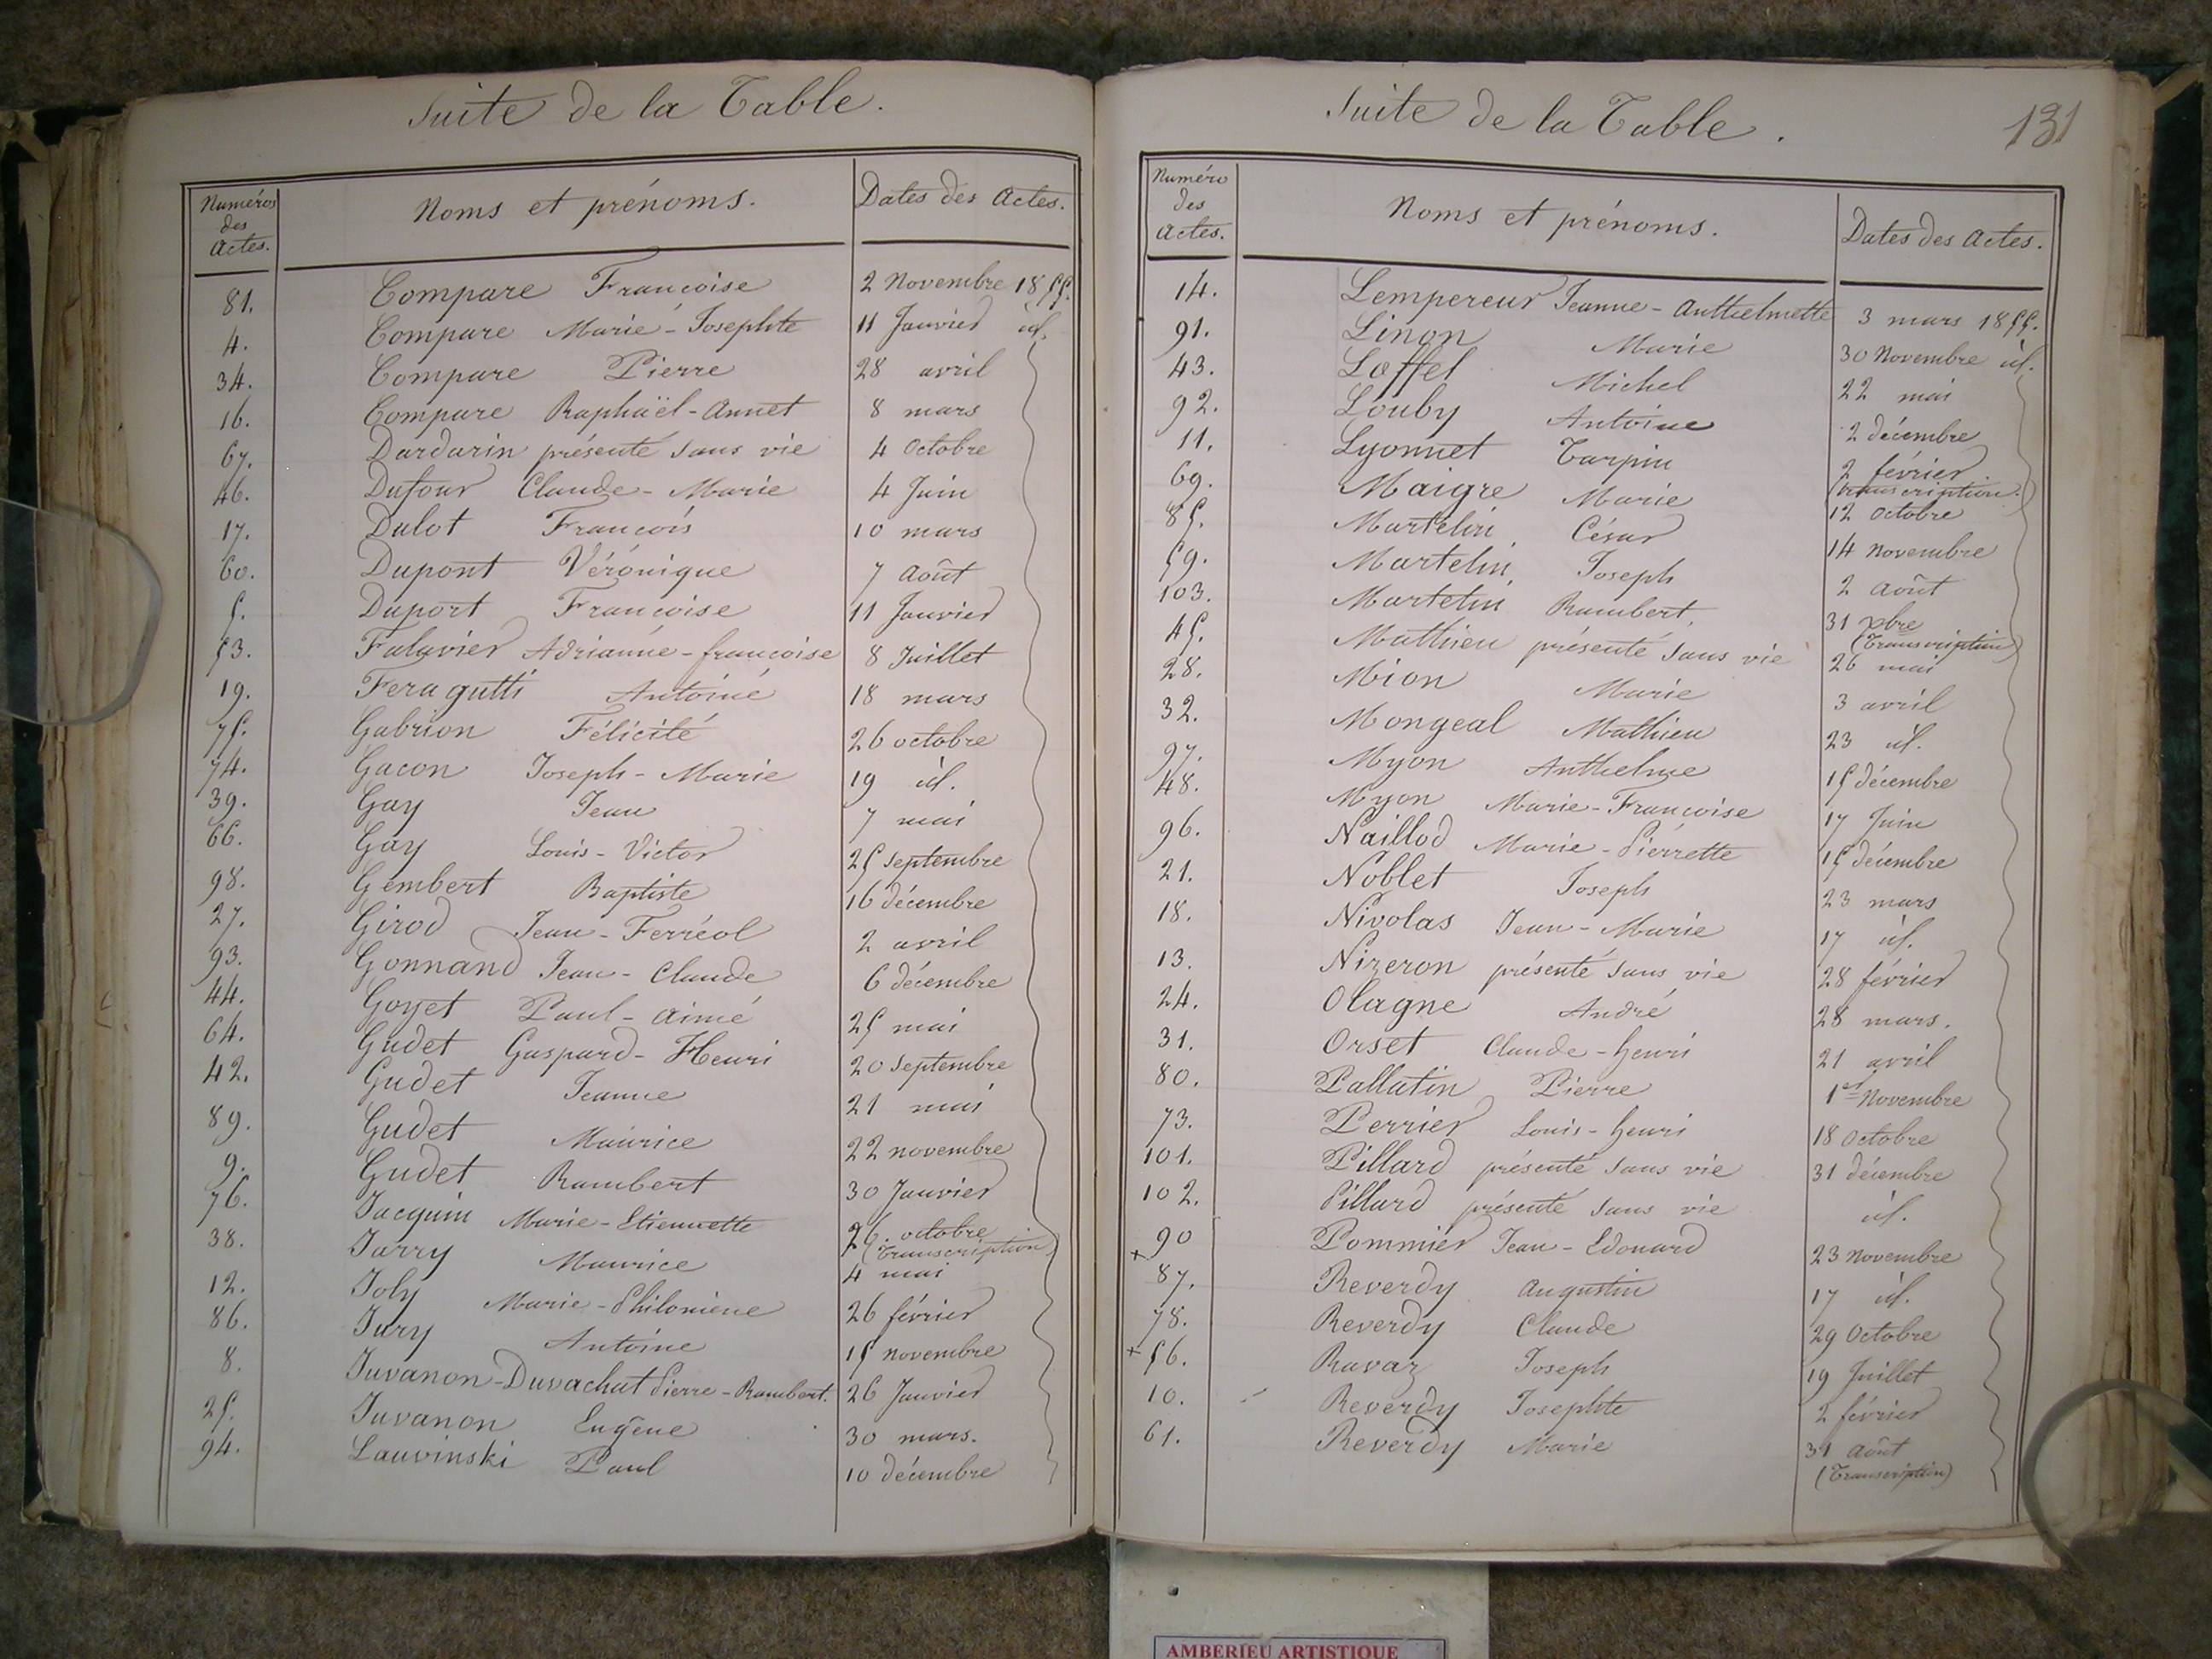 Suite de la Table.
Numéros des Actes. Noms et prénoms. Dates des Actes.
81. Compare Françoise 2 Novembre 1855.
4. Compare Marie-Josephte 11 Janvier id.
34. Compare Pierre 28 avril
16. Compare Raphaël-Annet 8 mars
67. Dardarin présenté sans vie 4 Octobre
46. Dufour Claude-Marie 4 Juin
17. Dulot François 10 mars
60. Dupont Véronique 7 Août
5. Duport Françoise 11 Janvier
53. Falavier Adrianne-françoise 8 Juillet
19. Feragutti Antoine 18 mars
75. Gabrion Félicité 26 octobre
74. Gacon Joseph-Marie 19 id.
39. Gay Jean 7 mai
66. Gay Louis-Victor 25 septembre
98. Gembert Baptiste 16 décembre
27. Girod Jean-Ferréol 2 avril
93. Gonnand Jean-Claude 6 décembre
44. Goyet Paul-Aimé 25 mai
64. Gudet Gaspard-Henri 20 Septembre
42. Gudet Jeanne 21 mai
89. Gudet Maurice 22 novembre
9. Gudet Rambert 30 Janvier
76. Jacquin Marie-Etiennette 26. octobre
(Transcription)
38. Jarry Maurice 4 mai
12. Joly Marie-Philomène 26 février
86. Jury Antoine 15 novembre
8. Juvanon-Duvachat Pierre-Rambert. 26 Janvier
25. Juvanon Eugène 30 mars.
94. Lauvinski Paul 10 décembre
Suite de la Table. 131
Numéro des Actes. Noms et prénoms. Dates des Actes.
14. Lempereur Jeanne-Anthelmette 3 mars 1855.
91. Linon Marie 30 Novembre id.
43. Loffel Michel 22 mai
92. Louby Antoine 2 décembre
11. Lyonnet Turpin 2 février
(transcription.)
69. Maigre Marie 12 Octobre
85. Martelin César 14 novembre
59. Martelin, Joseph 2 Août
103. Martelin Rambert, 31 xbre
(Transcription)
45. Mathieu présenté sans vie 26 mai
28. Mion Marie 3 avril
32. Mongeal Mathieu 23 id.
97. Myon Anthelme 15 décembre
48. Myon Marie-Françoise 17 Juin
96. Naillod Marie-Pierrette 15 décembre
21. Noblet Joseph 23 mars
18. Nivolas Jean-Marie 17 id.
13. Nizeron présenté sans vie 28 février
24. Olagne André 28 mars.
31. Orset Claude-henri 21 avril
80. Pallatin Pierre 1er Novembre
73. Perrier Louis-henri 18 Octobre
101. Pillard présenté sans vie 31 décembre
102. Pillard présenté sans vie id.
+ 90 Pommier Jean-Edouard 23 Novembre
87. Reverdy Augustin 17 id.
78. Reverdy Claude 29 Octobre
+ 56. Ravaz Joseph 19 Juillet
10. Reverdy Josephte 2 février
61. Reverdy Marie 31 Août
(Transcription)
AMBERIEU ARTISTIQUE